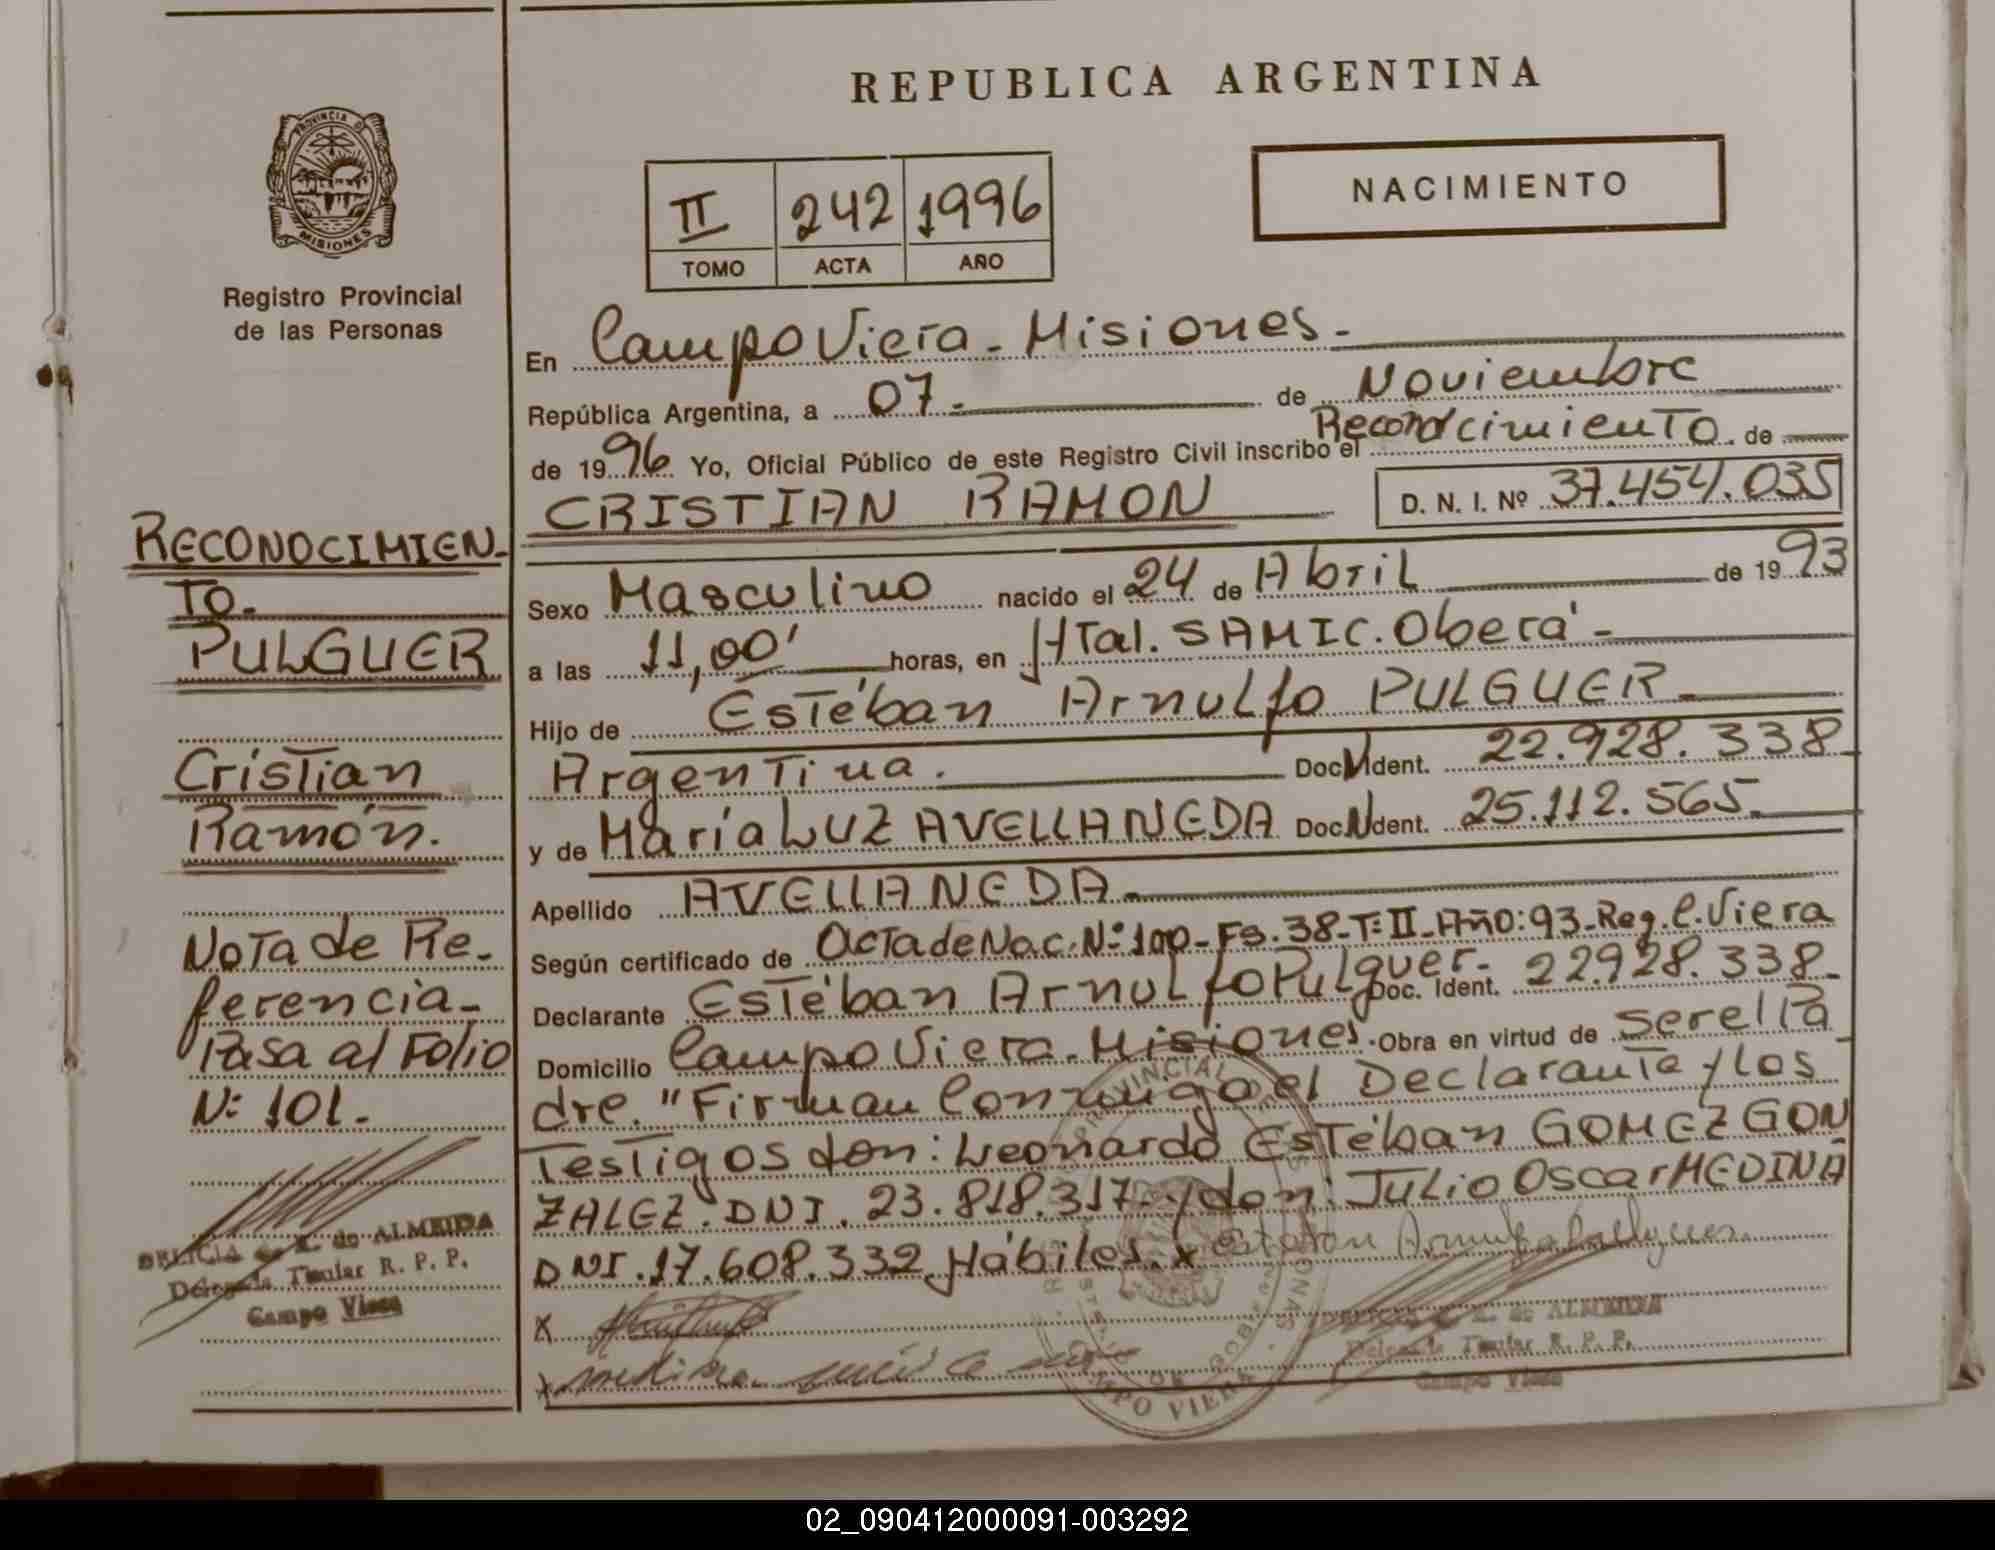 REPUBLICA ARGENTINA
PROVINCIA DE
MISIONES
Registro Provincial
de las Personas
II 242 1996
TOMO ACTA AÑO
NACIMIENTO
En Campo Viera - Misiones -
República Argentina, a 07 - de Noviembre
de 1996 Yo, Oficial Público de este Registro Civil inscribo el Reconocimiento de
CRISTIAN RAMON D. N. I. Nº 37.454.035
Sexo Masculino nacido el 24 de Abril de 1993
a las 11,00' horas, en HTal. SAMIC. Oberá -
Hijo de Estéban Arnulfo PULGUER -
Argentina. Doc N Ident. 22.928.338
y de María LUZ AVELLANEDA Doc N Ident. 25.112.565.
Apellido AVELLANEDA -
Según certificado de Acta de Nac. Nº 100 - Fs. 38 - Tº II - Año: 93 - Reg. C. Viera
Declarante Estéban Arnulfo Pulguer - Doc. Ident. 22.928.338 -
Domicilio Campo Viera - Misiones. Obra en virtud de ser el Pa
dre. "Firman Conmigo el Declarante y los
Testigos don: Leonardo Estéban GOMEZ GON
ZALEZ. DNI. 23.818.317 - y don: Julio Oscar MEDINA
DNI. 17.608.332 Hábiles. x
x
x
RECONOCIMIEN-
TO.
PULGUER
Cristian
Ramón.
Nota de Re-
ferencia -
Pasa al Folio
Nº 101.-
DELICIA de ALMEIDA
Delegada Titular R. P. P.
Campo Viera
de ALMEIDA
Delegada Titular R. P. P.
Campo Viera
PROVINCIAL
CAMPO VIERA
02_090412000091-003292